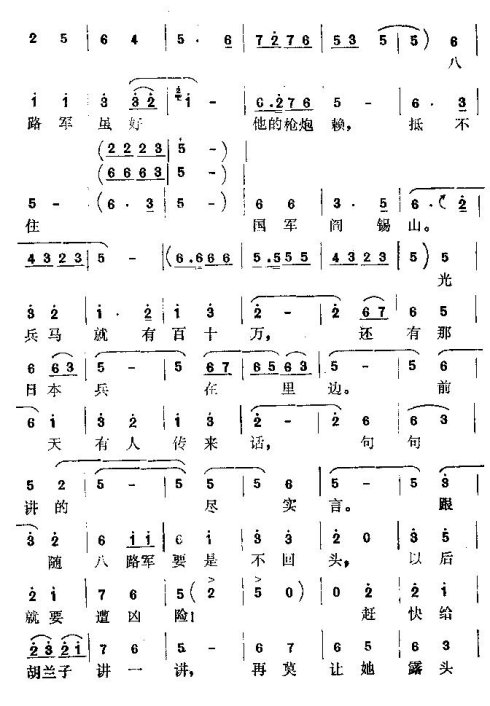 2 5 | 6 4 | 5· 6 | 7 2 7 6 | 5 3 5 | 5) 6
八
1 1 | 3 3 2 | 1 - | 6· 2 7 6 | 5 - | 6· 3
路军 虽好 他的枪炮 赖， 抵不
(2 2 2 3 | 5 -
(6 6 6 3 | 5 -
5 - | (6· 3 | 5 - | 6 6 | 3· 5 | 6· 2
住 国军 阎锡 山。
4 3 2 3 | 5 - | (6· 6 6 6 | 5· 5 5 5 | 4 3 2 3 | 5) 5
光
3 2 | 1· 2 | 1 3 | 2 - | 2 6 7 | 6 5
兵马 就有 百十 万， 还 有那
6 6 3 | 5 - | 5 6 7 | 6 5 6 3 | 5 - | 5 5
日本 兵 在 里 边。 前
6 1 | 3 2 | 1 3 | 2 - | 2 6 | 6 3
天 有人 传来 话， 句 句
5 2 | 5 - | 5 5 | 5 6 | 5 - | 5 3
讲的 尽 实 言。 跟
3 2 | 6 1 1 | 2 1 | 3 3 | 2 0 | 3 5
随 八路军 要是 不回 头， 以后
2 1 | 7 6 | 5 (2 | 5 0) | 0 2 | 2 1
就要 遭凶 险！ 赶 快给
2 3 2 1 | 7 6 | 5 - | 6 7 | 6 5 | 6 3
胡兰子 讲一 讲， 再莫 让她 露头